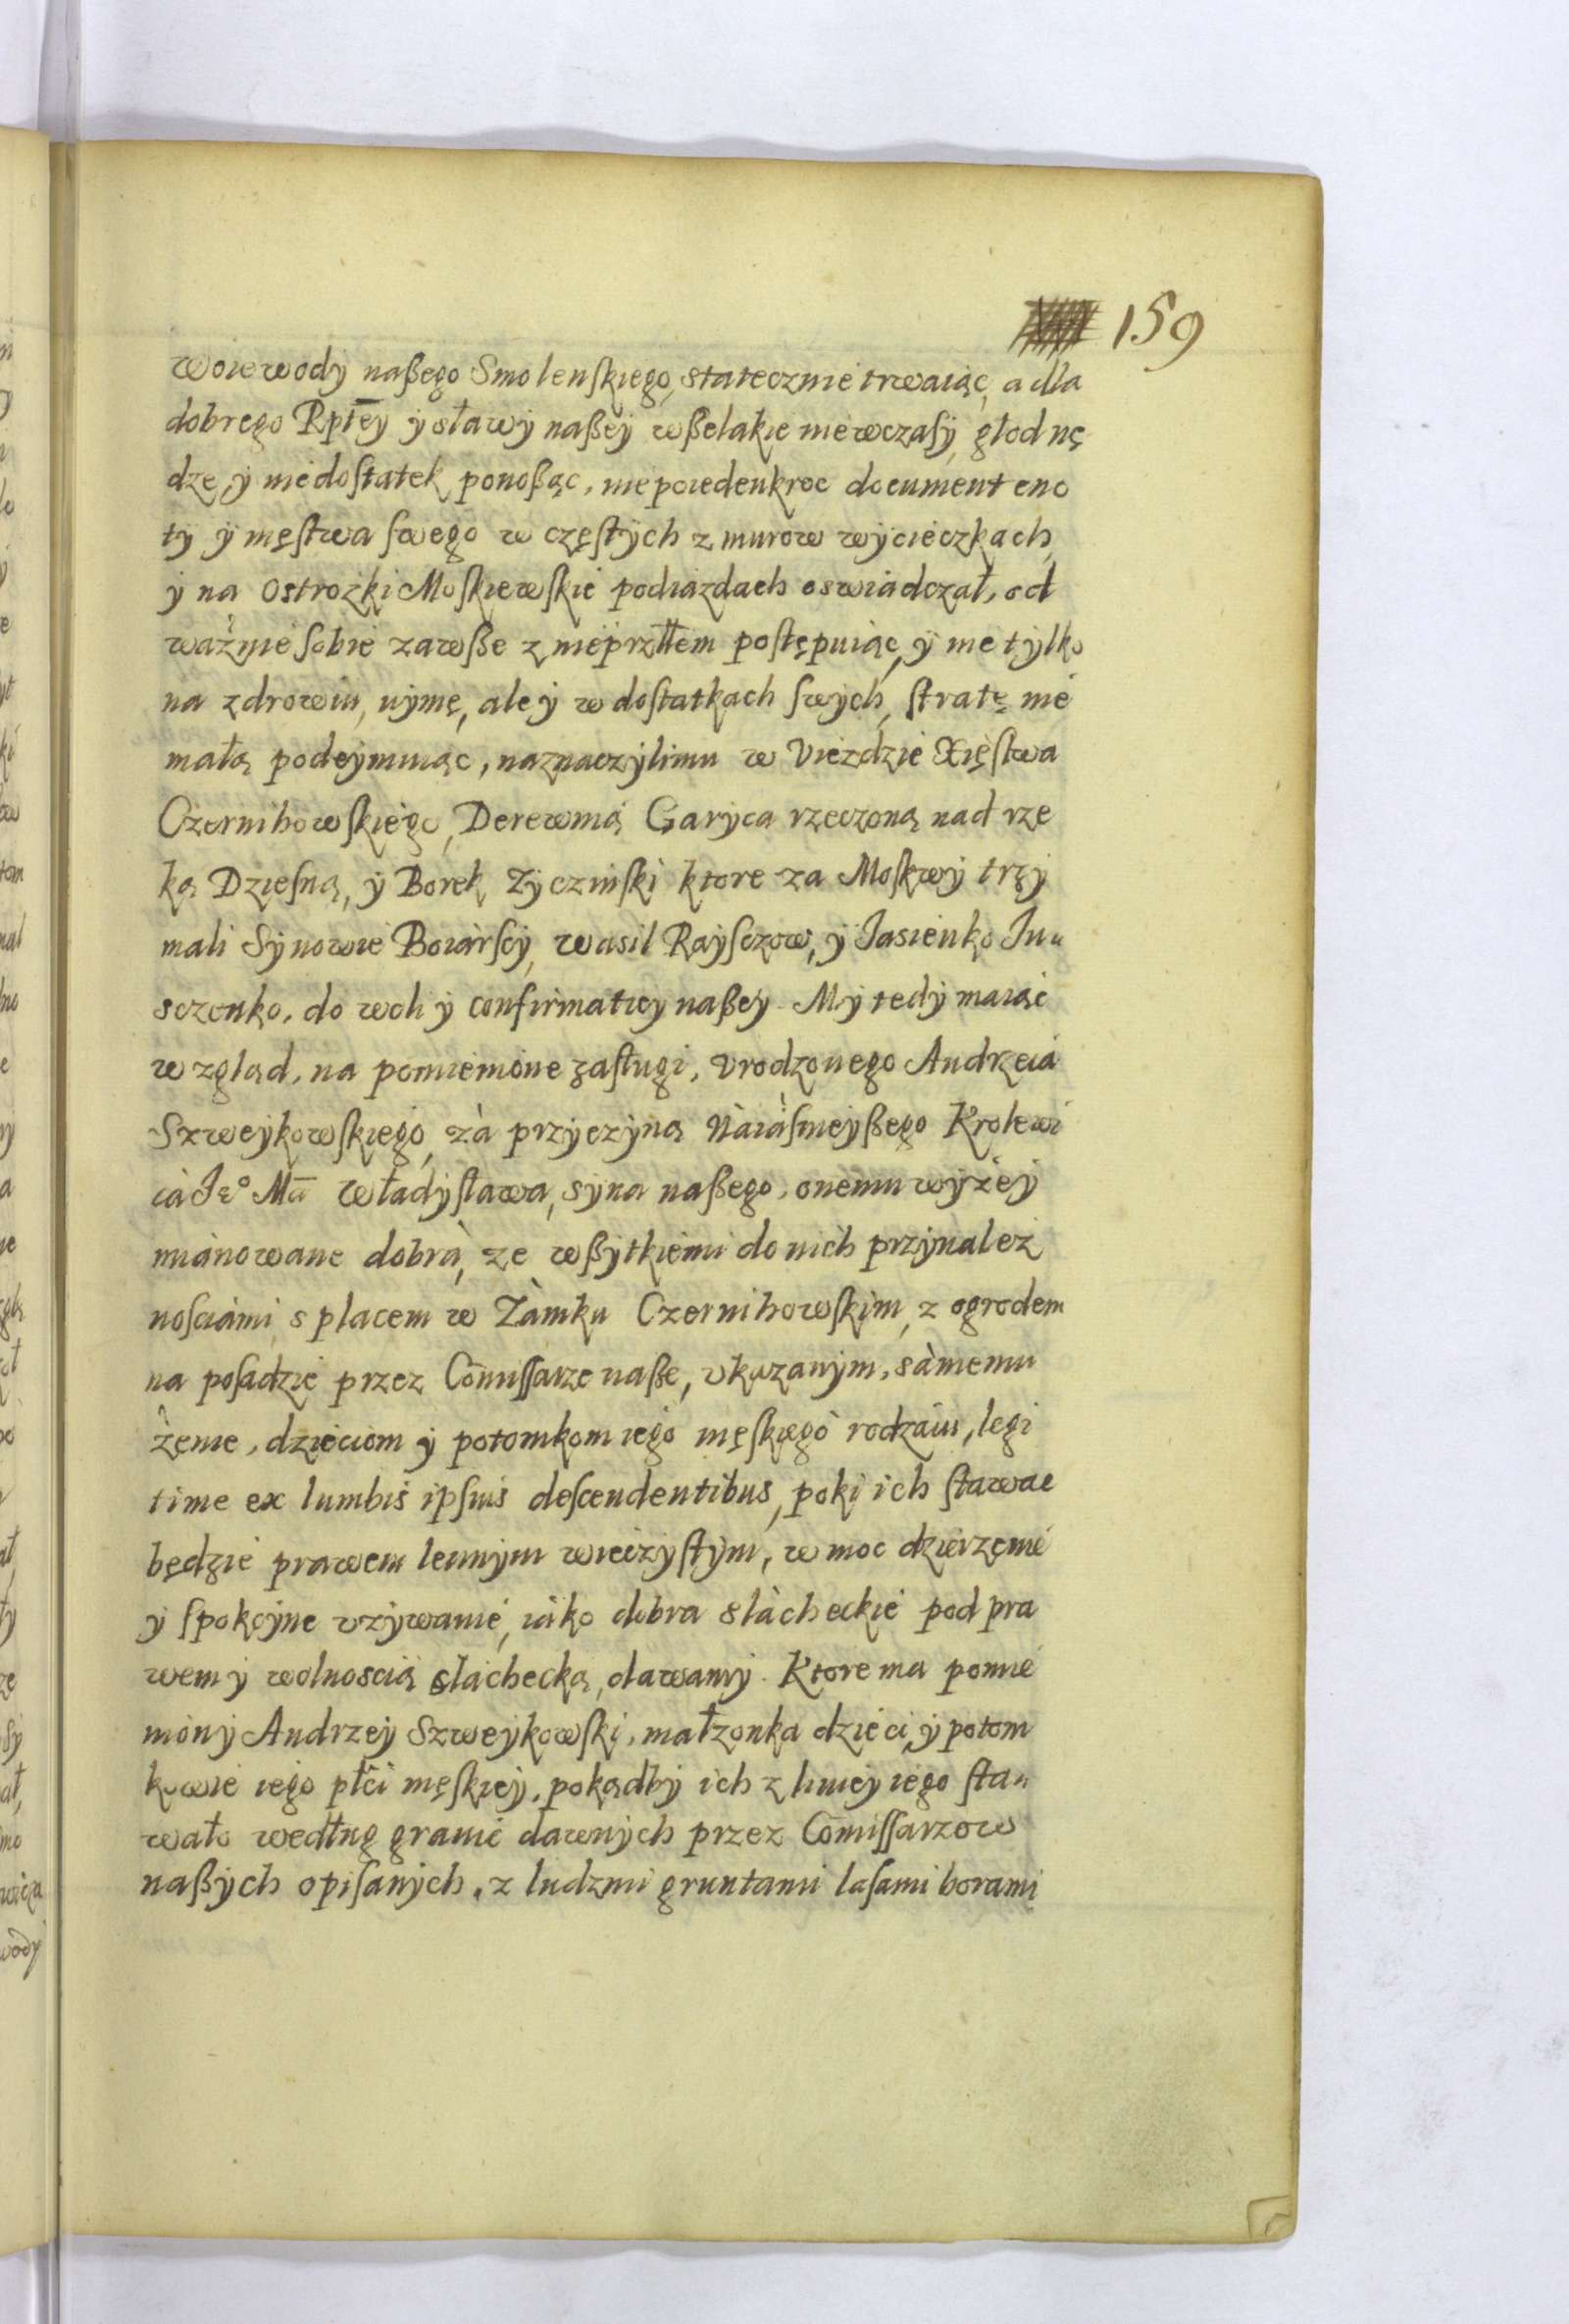 159
woiewody naßego Smolenskiego, statecznie trwaiąc, a dla
dobrego Rptey y sławy naßey wßelakie niewczasy, głod nę
dze, y niedostatek ponoßąc, niepoiedenkroc document cno
ty y męstwa swego w częstych z murow wycieczkach,
y na Ostrożki Moskiewskie podiazdach oswiadczał, od
ważnie sobie zawße z nieprztłem postępuiąc, y nie tylko
na zdrowiu, uymę, ale y w dostatkach swych, stratę nie
małą podeymuiąc, naznaczylimu w Uieżdzie Xięstwa
Czernihowskiego, Derewnią Garyca rzeczoną nad rze
ką Dziesną, y Borek Zyczinski ktore za Moskwy trzy
mali Synowie Boiarscy, Wasil Raysczow, y Jasienko Ju
sczenko, do woli y confirmatiey naßey. My tedy maiąc
wzgląd, na pomienione zasługi, Urodzonego Andrzeia
Szweykowskiego, zà przyczyną Naiàsnieyßego Krolewi
cà Je° Mci Władysława, syna naßego, onemu wyżey
mianowane dobrà, ze wßytkiemi do nich przynależ
nosciami, s placem w Zàmku Czernihowskim, z ogrodem
na posadzie przez Comissarze naße, ukazanym, sàmemu
żenie, dzieciom y potomkom iego męskiego rodzaiu, legi
time ex lumbis ipsius descendentibus, poki ich stawac
będzie prawem lennym wieczystym, w moc dzierzęnie
y spokoyne używanie, iàko dobra slàcheckie pod pra
wem y wolnoscią slachecką, dawamy. Ktore ma pomie
niony Andrzey Szweykowski, małzonka dzieci, y potom
kowie iego płci męskiey, pokądby ich z liniey iego sta
wało według granic dawnych przez Comissarzow
naßych opisanych, z ludzmi gruntami lasami borami